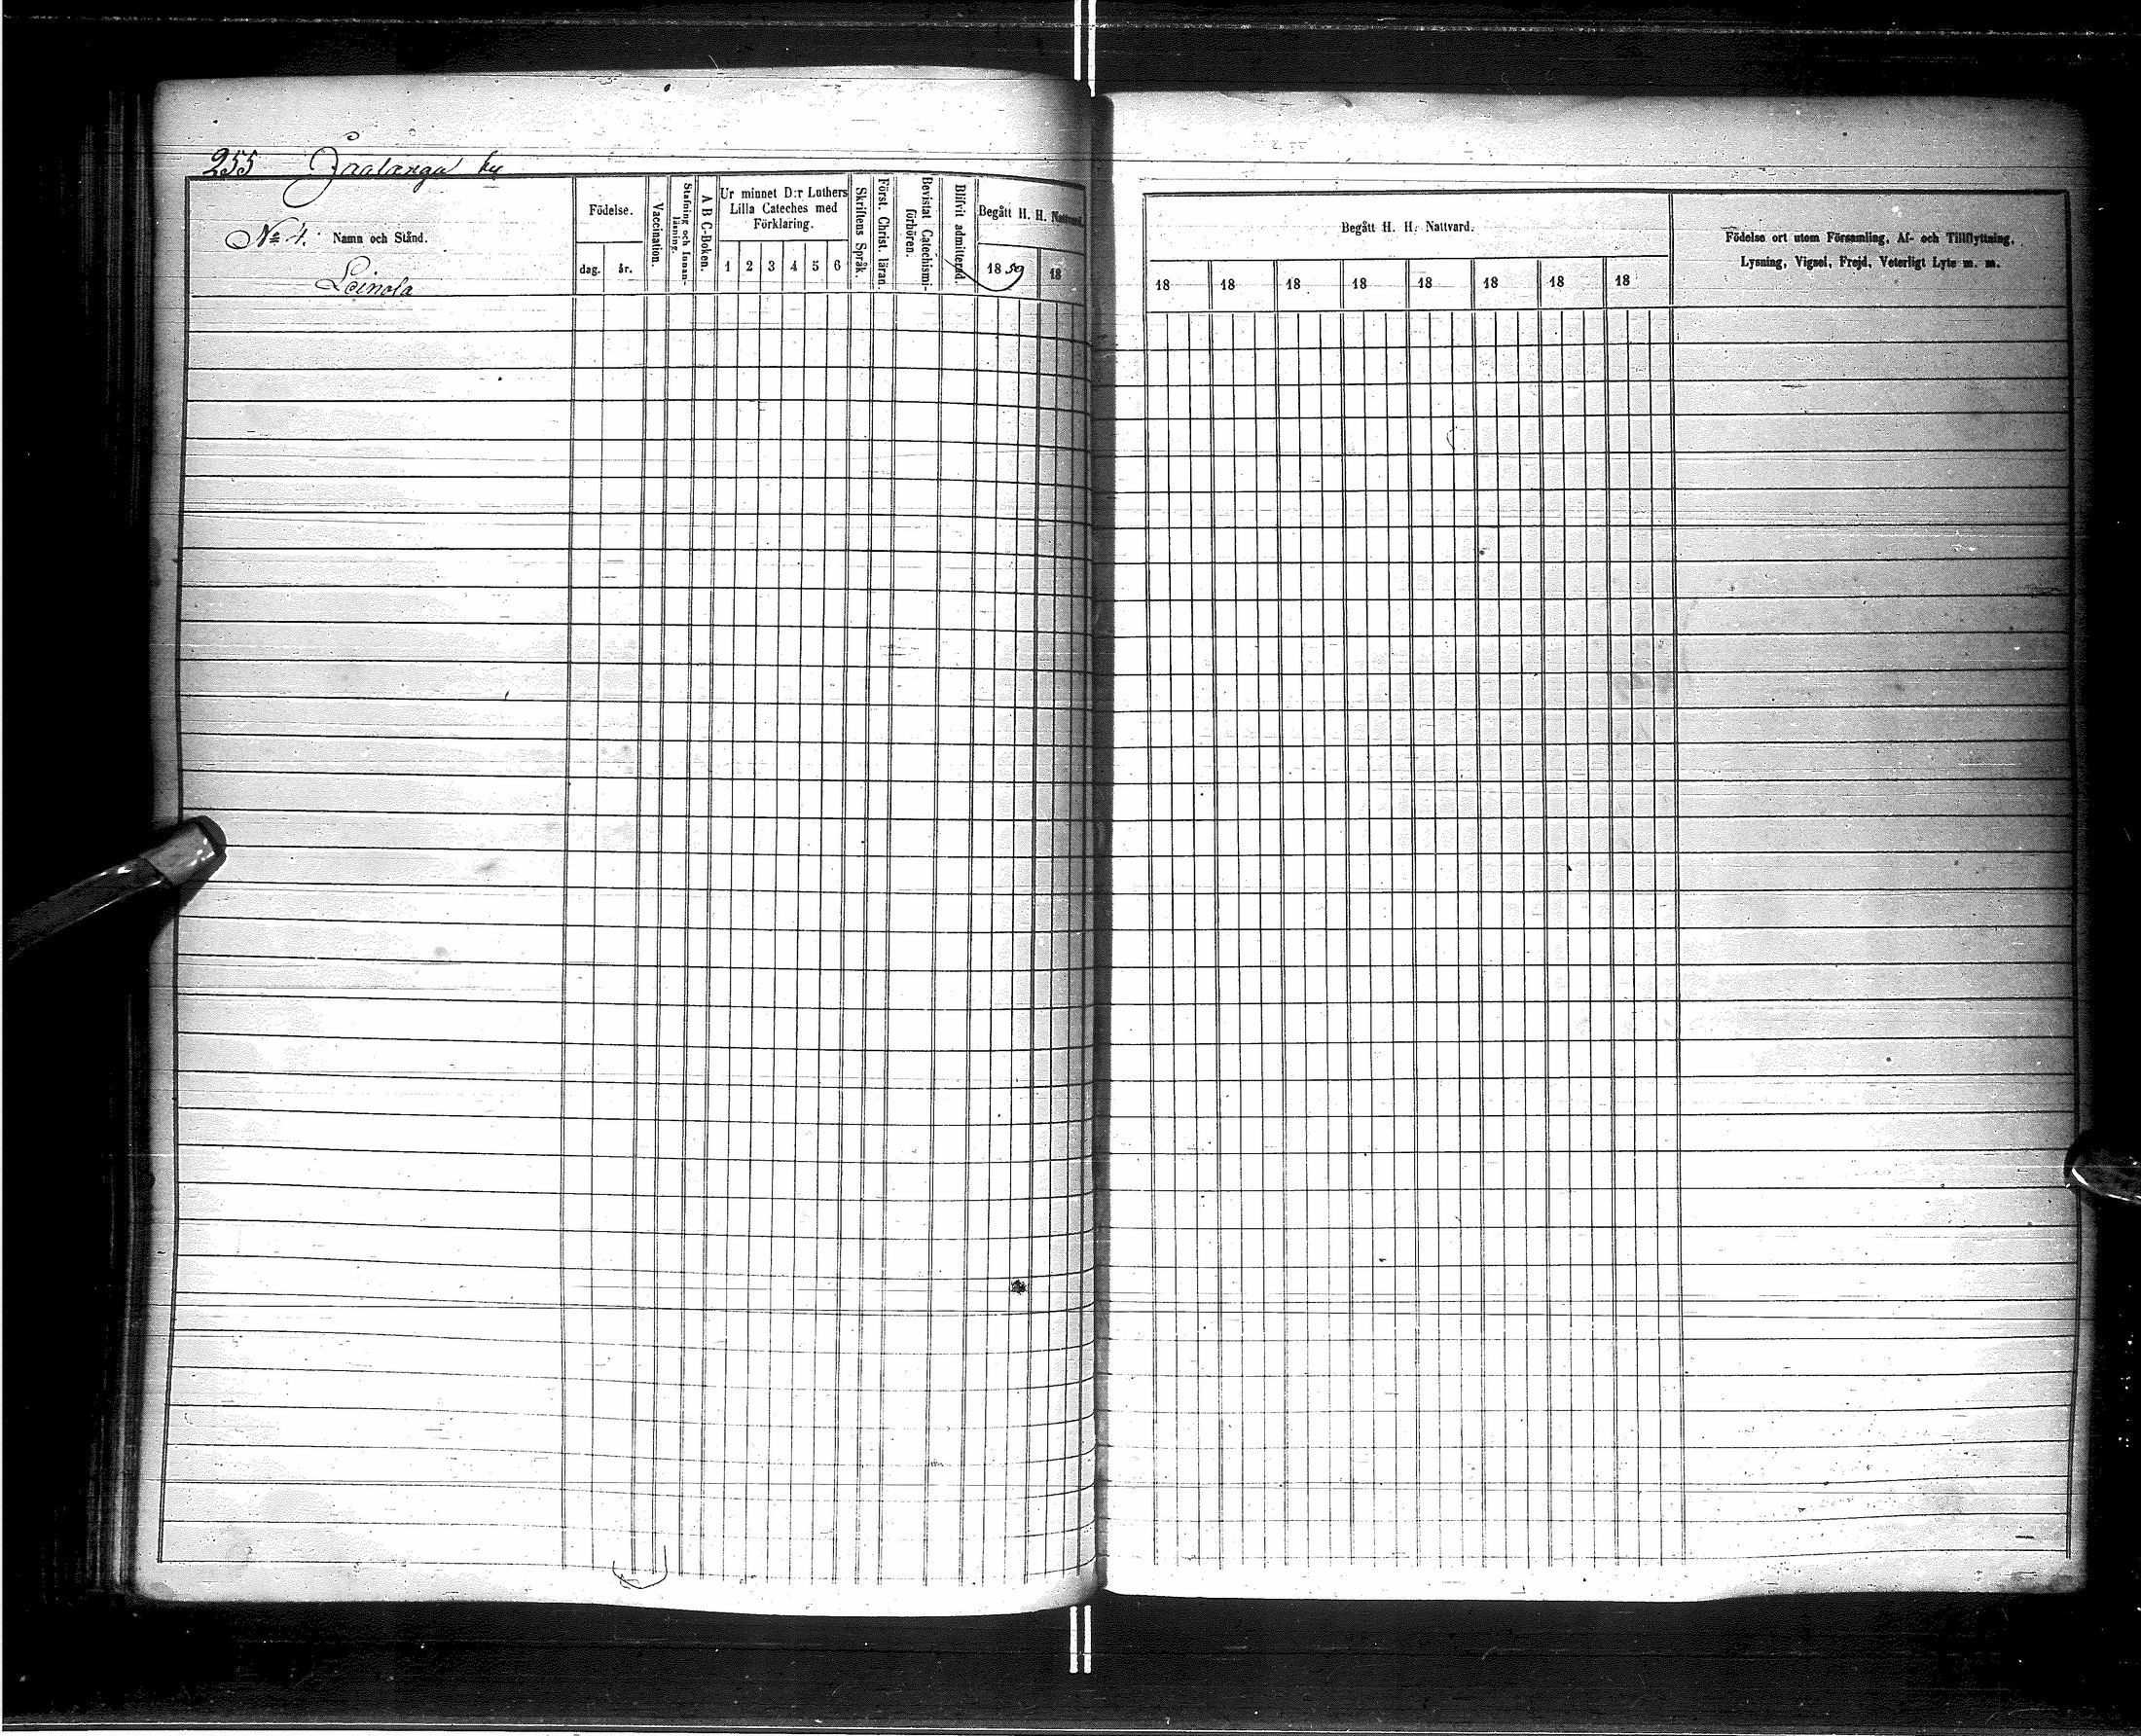 255 Jaalanga by
Födelse.
Vaccination.
Stafning och Innan-
läsning.
A B C-Boken.
Ur minnet D:r Luthers
Lilla Cateches med
Förklaring.
Skriftens Språk.
Först. Christ. läran.
Bevistat Catechismi-
förhören.
Blifvit admitterad.
Begått H. H. Nattvard.
№ 4. Namn och Stånd.
dag. år.
1 2 3 4 5 6
1859 18
Leinola
Begått H. H. Nattvard.
18 18 18 18 18 18 18 18
Födelse ort utom Församling, Af- och Tillflyttning,
Lysning, Vigsel, Frejd, Veterligt Lyte m. m.